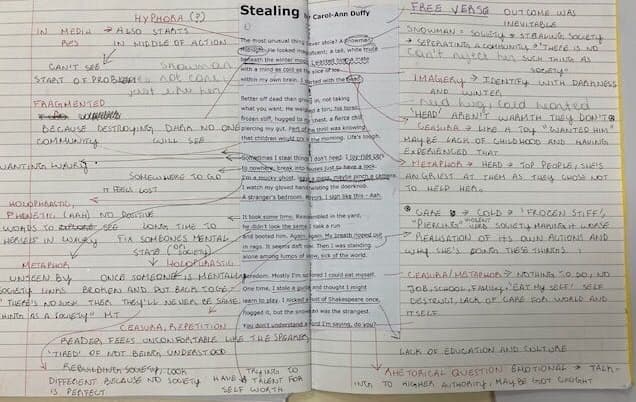 HYPHORA (?)
IN MEDIA → ALSO STARTS
RES IN MIDDLE OF ACTION
CAN'T SEE
START OF PROBLEM
FRAGMENTED
BECAUSE DESTROYING DARK NO ONE
COMMUNITY WILL SEE
WANTING
SOMEWHERE TO GO
IT FEELS LOST
HOLOPHRASTIC,
PHONETIC (AAH) NO POSITIVE
WORDS TO SEE LONG TIME TO
HERSELF IN FIX SOMEONE'S MENTAL
STATE (OR SOCIETY)
METAPHOR HOLOPHRASTIC
UNSEEN BY ONCE SOMEONE IS MENTALLY
SOCIETY LINKS BROKEN AND PUT BACK TOGETHER
"THERE'S NO SUCH THEN THEY'LL NEVER BE SAME.
THING AS A SOCIETY" MT
CEASURA, REPETITION
READER FEELS UNCOMFORTABLE LIKE THE SPEAKER
'TIRED' OF NOT BEING UNDERSTOOD
REBUILDING SOCIETY, LOOK
DIFFERENT BECAUSE NO SOCIETY
IS PERFECT
TRYING TO
HAVE A TALENT FOR
SELF WORTH
Stealing by Carol-Ann Duffy
The most unusual thing I ever stole? A snowman.
Midnight. He looked magnificent; a tall, white mute
beneath the winter moon. I wanted him, a mate
with a mind as cold as the slice of ice
within my own brain. I started with the head.
Better off dead than giving in, not taking
what you want. He weighed a ton; his torso,
frozen stiff, hugged to my chest, a fierce chill
piercing my gut. Part of the thrill was knowing
that children would cry in the morning. Life's tough.
Sometimes I steal things I don't need. I joy-ride cars
to nowhere, break into houses just to have a look.
I'm a mucky ghost, leave a mess, maybe pinch a camera.
I watch my gloved hand twisting the doorknob.
A stranger's bedroom. Mirrors. I sigh like this - Aah.
It took some time. Reassembled in the yard,
he didn't look the same. I took a run
and booted him. Again. Again. My breath ripped out
in rags. It seems daft now. Then I was standing
alone among lumps of snow, sick of the world.
Boredom. Mostly I'm so bored I could eat myself.
One time, I stole a guitar and thought I might
learn to play. I nicked a bust of Shakespeare once,
flogged it, but the snowman was the strangest.
You don't understand a word I'm saying, do you?
FREE VERSE OUTCOME WAS
INEVITABLE
SNOWMAN = SOCIETY → STEALING SOCIETY
→ SEPERATING A COMMUNITY → "THERE IS NO
SUCH THING AS
SOCIETY"
IMAGERY → IDENTIFY WITH DARKNESS
AND WINTER
'HEAD' AREN'T WARMTH THEY DON'T
CEASURA → LIKE A TOY "WANTED HIM"
MAYBE LACK OF CHILDHOOD AND HAVING
EXPERIENCED THAT
METAPHOR → HEAD → TOP PEOPLE, SHE'S
ANGRIEST AT THEM AS THEY CHOSE NOT
TO HELP HER.
CARE → COLD → 'FROZEN STIFF',
"PIERCING" VIOLENT VERB SOCIETY MAKING IT WORSE
REALISATION OF ITS OWN ACTIONS AND
WHY SHE'S DOING THESE THINGS.
CEASURA/METAPHOR → NOTHING TO DO, NO
JOB, SCHOOL, FAMILY, 'EAT MY SELF' SELF
DESTRUCT, LACK OF CARE FOR WORLD AND
ITSELF
LACK OF EDUCATION AND CULTURE
RHETORICAL QUESTION EMOTIONAL → TALK-
ING TO HIGHER AUTHORITY, MAYBE GOT CAUGHT